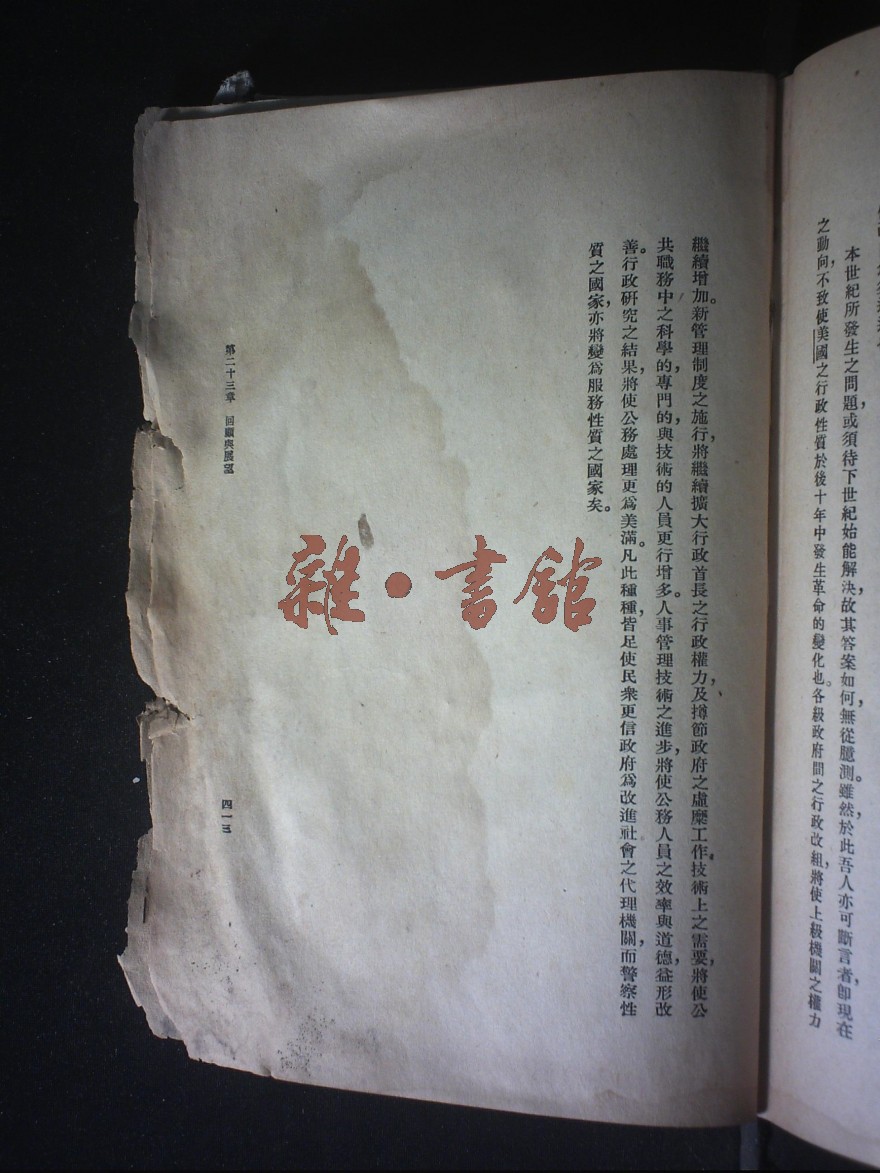 本世紀所發生之問題，或須待下世紀始能解決，故其答案如何，無從臆測。雖然，於此吾人亦可斷言者，卽現在
之動向，不致使美國之行政性質於後十年中發生革命的變化也。各級政府間之行政改組，將使上級機關之權力
繼續增加。新管理制度之施行，將繼續擴大行政首長之行政權力，及撙節政府之虛糜。工作技術上之需要，將使公
共職務中之科學的，專門的，與技術的人員更行增多。人事管理技術之進步，將使公務人員之效率與道德，益形改
善。行政研究之結果，將使公務處理更爲美滿。凡此種種，皆足使民衆更信政府爲改進社會之代理機關，而警察性
質之國家，亦將變爲服務性質之國家矣。
第二十三章　回顧與展望
四一三
雜•書館